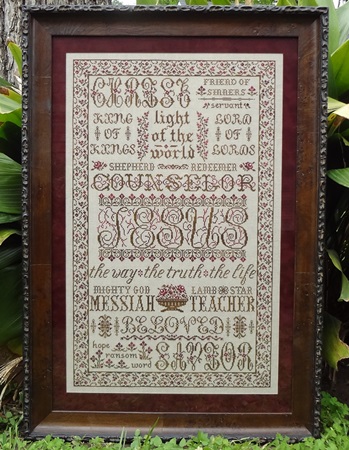 CHRIST FRIEND OF SINNERS servant
KING OF KINGS light of the world LORD OF LORDS
SHEPHERD REDEEMER
COUNSELOR
JESUS
the way the truth the life
MIGHTY GOD LAMB STAR
MESSIAH TEACHER
BELOVED
hope ransom word SAVIOR